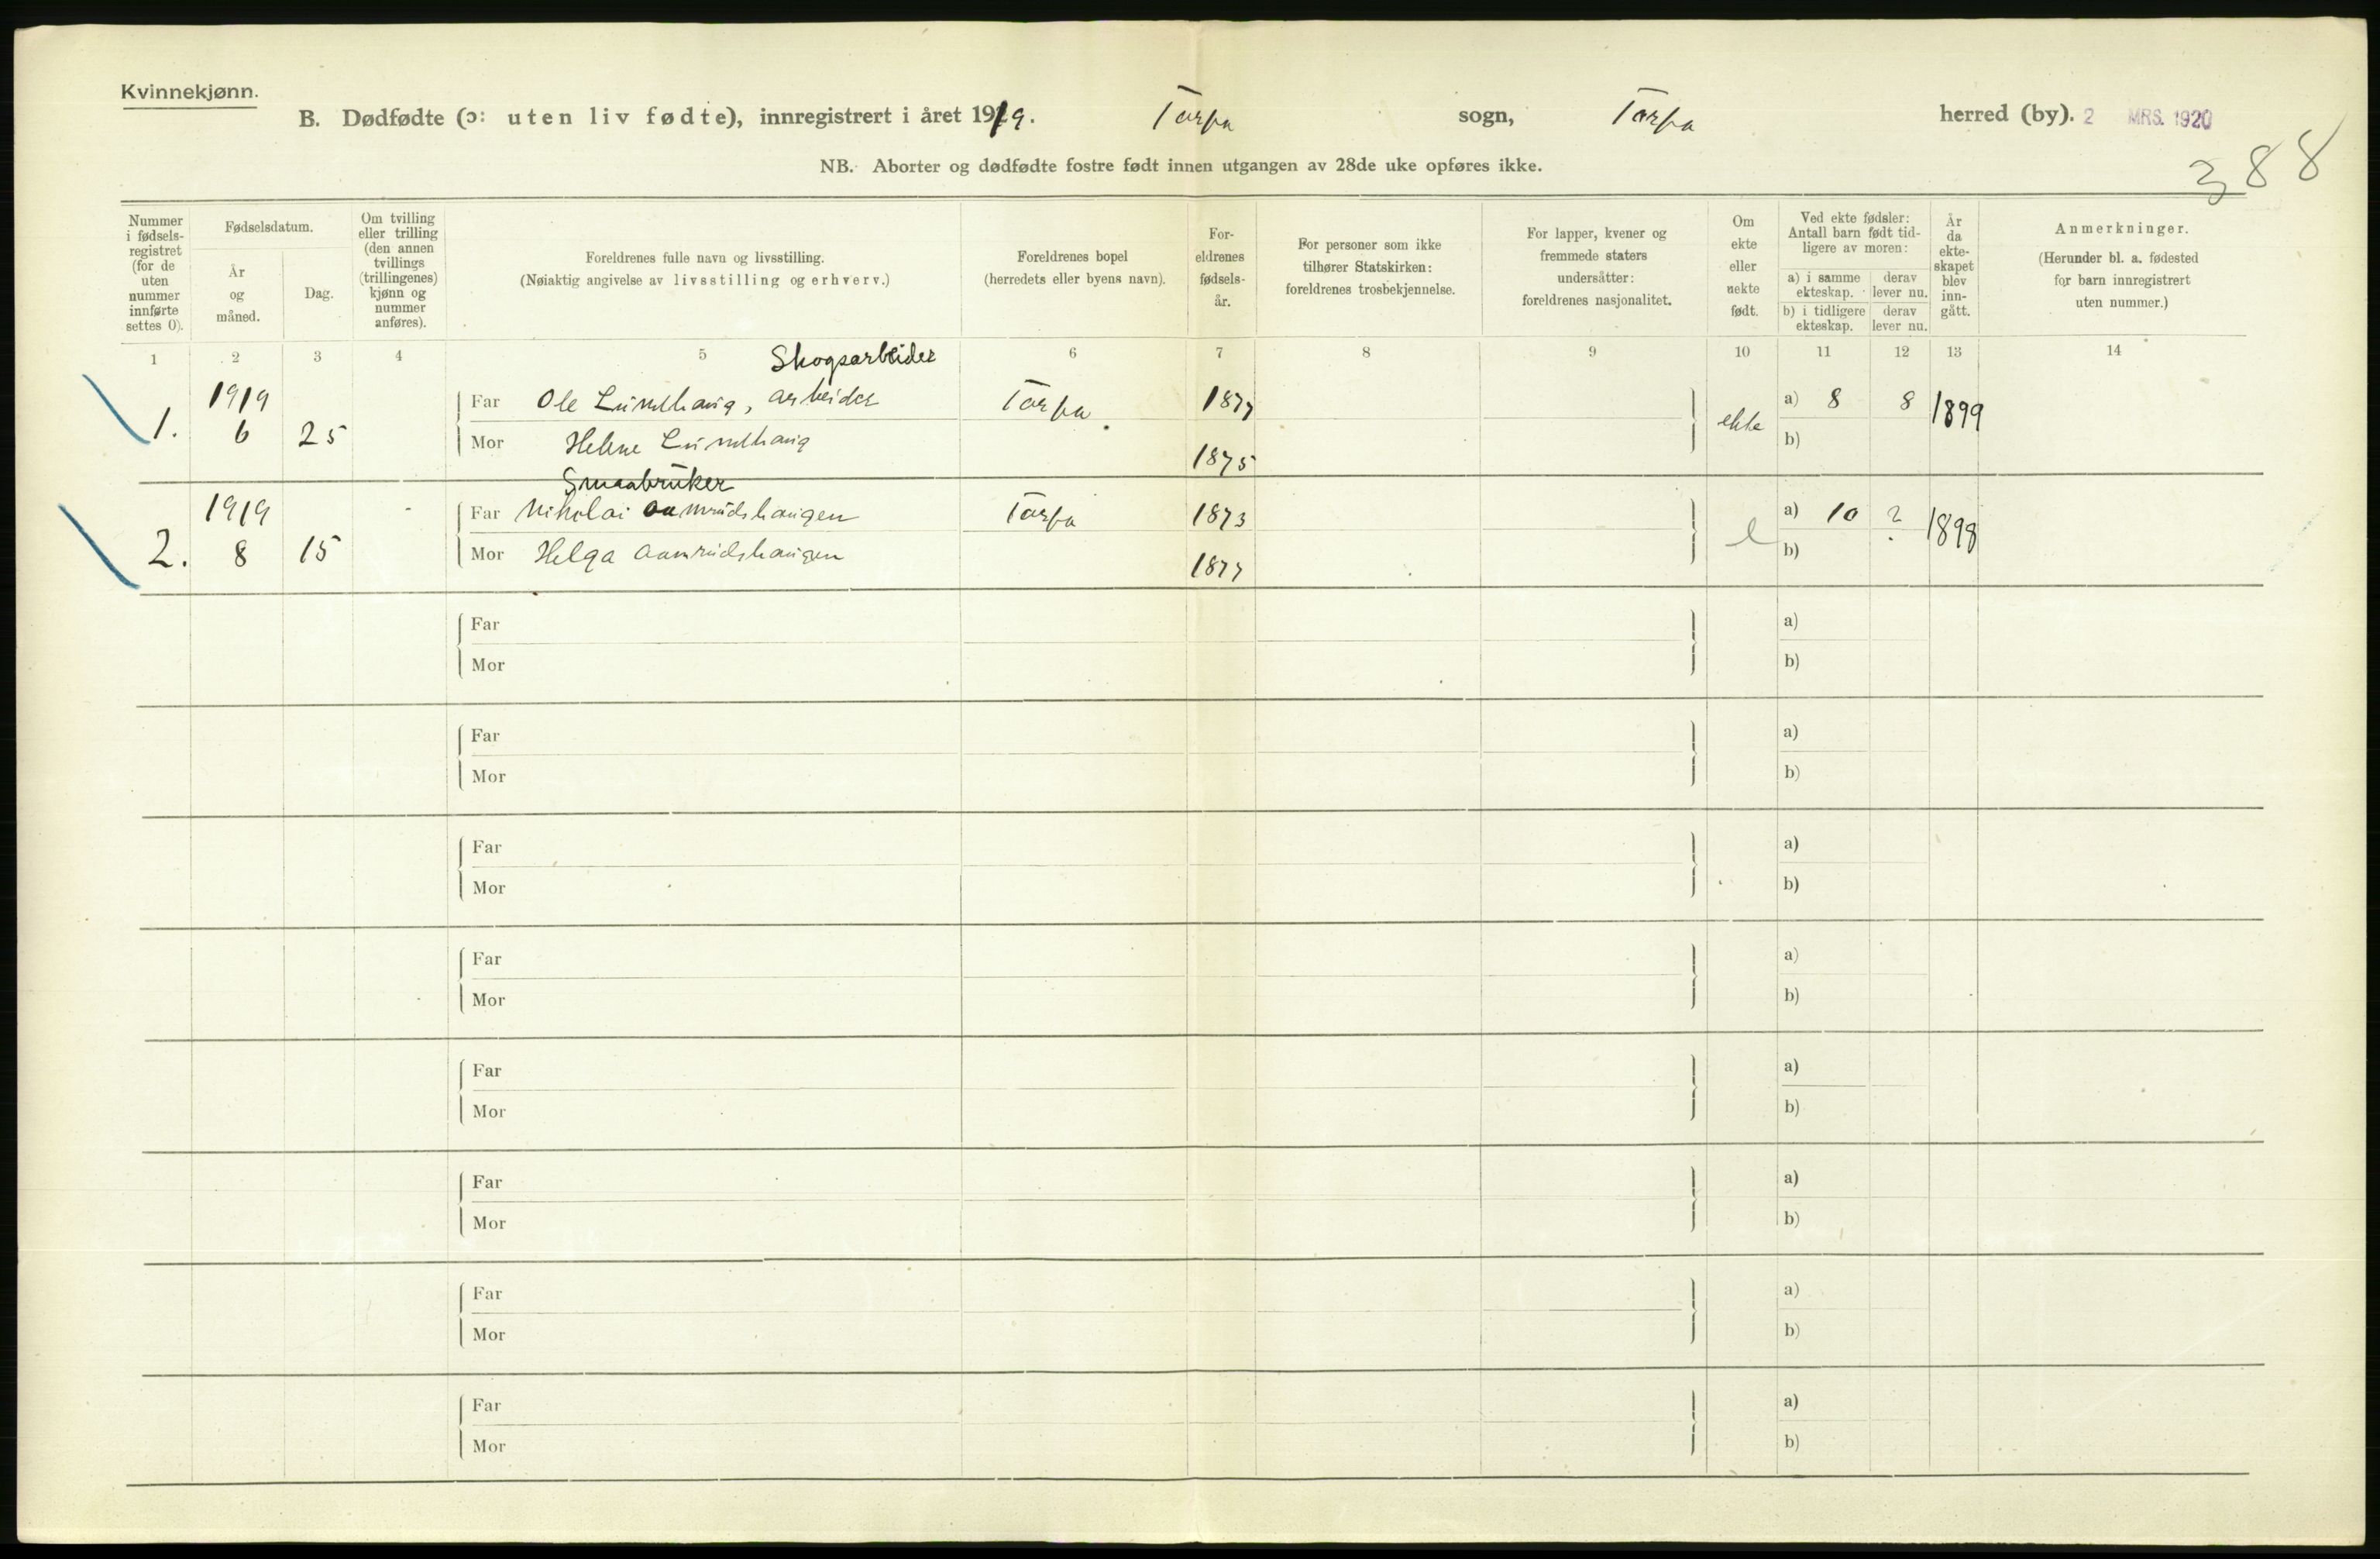 Kvinnekjønn.
B. Dødfødte (ɔ: uten liv fødte), innregistrert i året 1919. Torpa sogn, Torpa herred (by). 2 MRS. 1920
388
NB. Aborter og dødfødte fostre født innen utgangen av 28de uke opføres ikke.
Nummer i fødsels-registret (for de uten nummer innførte settes 0).
Fødselsdatum.
År og måned.
Dag.
Om tvilling eller trilling (den annen tvillings (trillingenes) kjønn og nummer anføres).
Foreldrenes fulle navn og livsstilling.
(Nøiaktig angivelse av livsstilling og erhverv.)
Foreldrenes bopel
(herredets eller byens navn).
For-eldrenes fødsels-år.
For personer som ikke tilhører Statskirken: foreldrenes trosbekjennelse.
For lapper, kvener og fremmede staters undersåtter: foreldrenes nasjonalitet.
Om ekte eller uekte født.
Ved ekte fødsler: Antall barn født tid-ligere av moren:
a) i samme ekteskap. derav lever nu.
b) i tidligere ekteskap. derav lever nu.
År da ekte-skapet blev inn-gått.
Anmerkninger.
(Herunder bl. a. fødested for barn innregistrert uten nummer.)
1 2 3 4 5 6 7 8 9 10 11 12 13 14
Skogsarbeider
1919 Far Ole Lundhaug, arbeider Torpa 1877 a) 8 8 1899
1. 6 25 Mor Helene Lundhaug 1875 ekte b)
Smaabruker
1919 Far Nikolai Aamrudshaugen Torpa 1873 a) 10 ? 1898
2. 8 15 Mor Helga Aamrudshaugen 1877 e b)
Far a)
Mor b)
Far a)
Mor b)
Far a)
Mor b)
Far a)
Mor b)
Far a)
Mor b)
Far a)
Mor b)
Far a)
Mor b)
Far a)
Mor b)